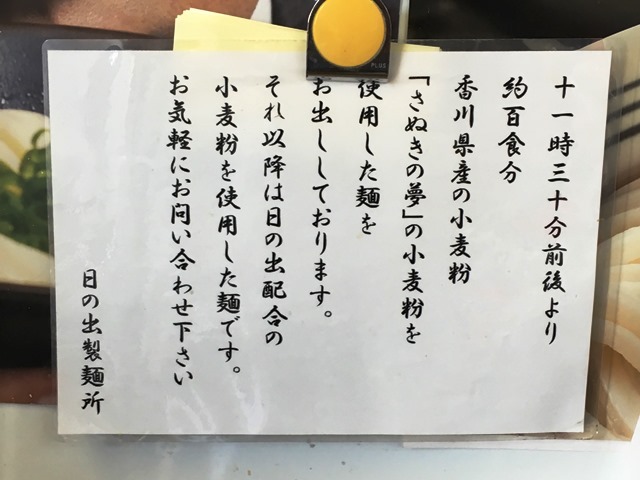 十一時三十分前後より
約百食分
香川県産の小麦粉
「さぬきの夢」の小麦粉を
使用した麺を
お出ししております。
それ以降は日の出配合の
小麦粉を使用した麺です。
お気軽にお問い合わせ下さい
日の出製麺所
PLUS